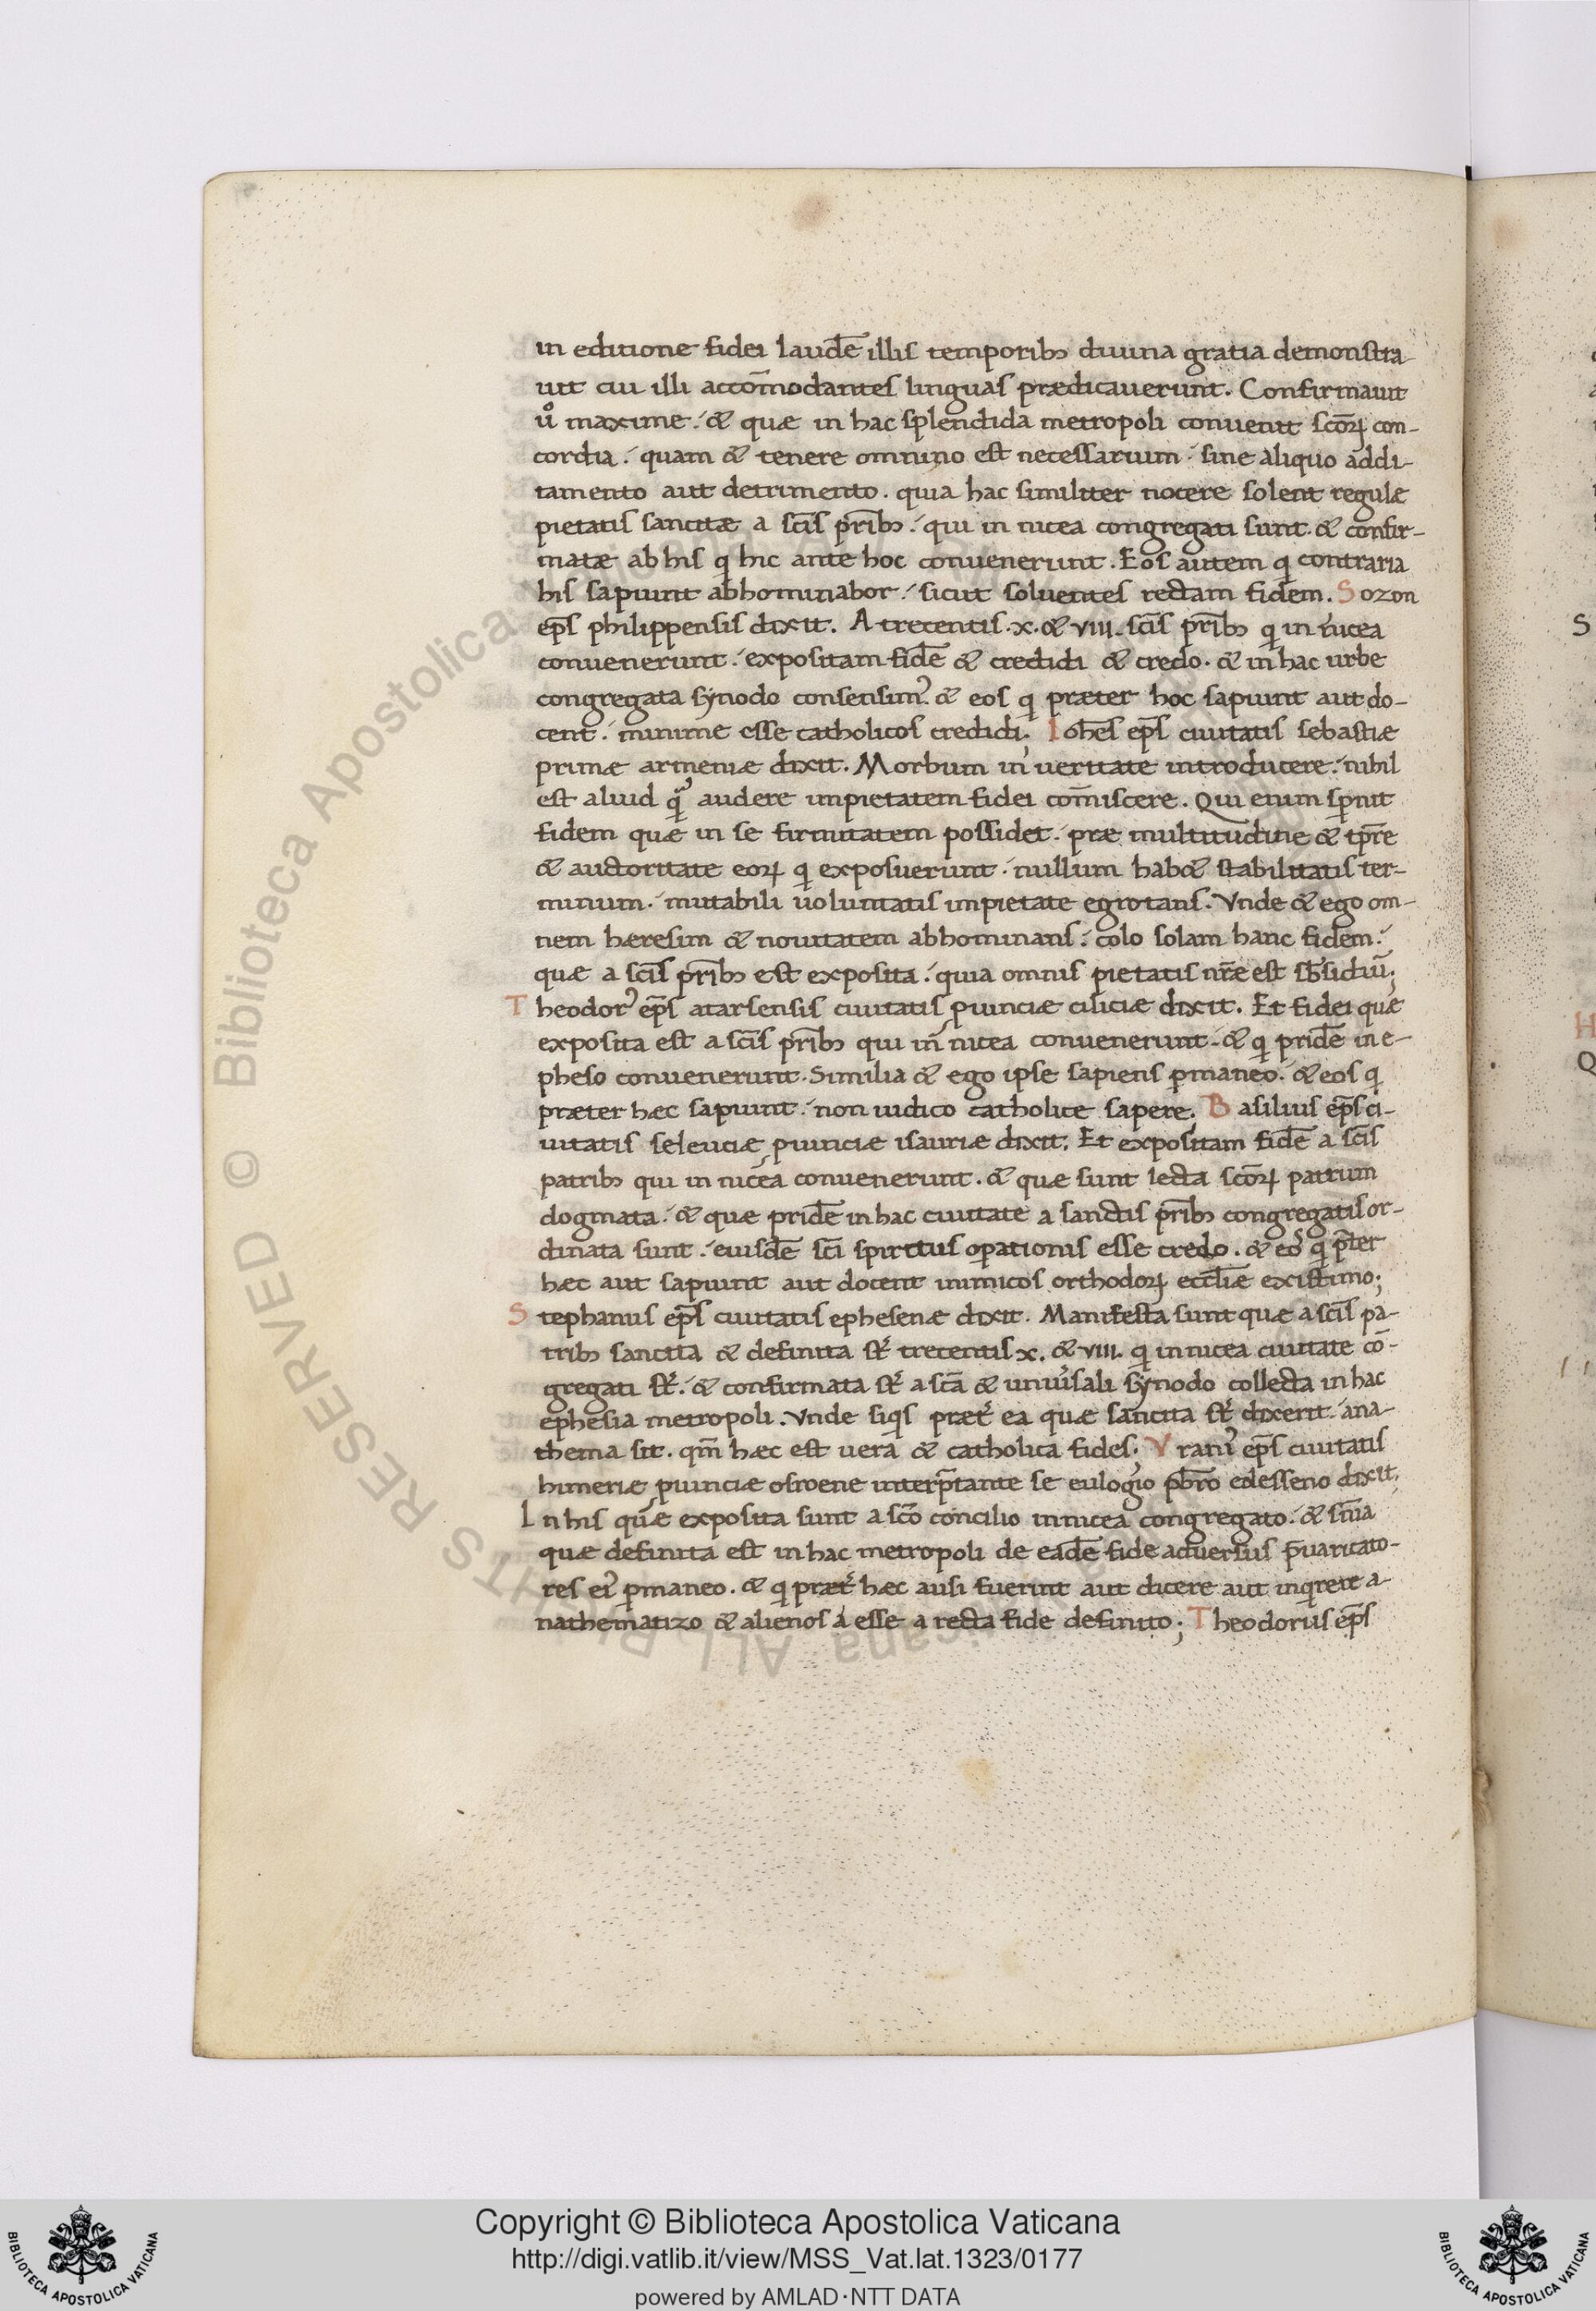 in editione fidei laudē illis temporibꝫ diuina gratia demonstra-
uit cui illi accōmodantes linguas prædicauerunt. Confirmauit
ůo maxime. & quæ in hac splendida metropoli conuenit scōꝝ con-
cordia. quam & tenere omnino est necessarium. sine aliquo addi-
tamento aut detrimento. quia hac similiter nocere solent regulæ
pietatis sancitæ a scīs prībꝫ. qui in nicea congregati sunt. & confir-
matæ ab his q hic ante hoc conuenerunt. Eos autem q contraria
his sapiunt abhominabor. sicut soluentes rectam fidem. Sozon
ep̄s philippensis dixit. A trecentis .x. & VIII. scīs prībꝫ q in nicea
conuenerunt. expositam fidē & credidi & credo. & in hac urbe
congregata synodo consensim᾽. & eos q præter hoc sapiunt aut do-
cent. minime esse catholicos credidi; Ioh̄es ep̄s ciuitatis sebastiæ
primæ armeniæ dixit. Morbum in ueritate introducere. nihil
est aliud q̃ᵃ audere impietatem fidei com̄iscere. Qui enim sp̲nit
fidem quæ in se firmitatem possidet. præ multitudine & tp̄re
& auctoritate eoꝝ q exposuerunt. nullum hab& stabilitatis ter-
minum. mutabili uoluntatis impietate egrotans. Vnde & ego om-
nem hæresim & nouitatem abhominans. colo solam hanc fidem.
quæ a scīs prībꝫ est exposita. quia omnis pietatis nr̄æ est sb̄sidiū;
Theodor᾽ ep̄s atarsensis ciuitatis ꝓuinciæ ciliciæ dixit. Et fidei quæ
exposita est a scīs prībꝫ qui in nicea conuenerunt. & q pridē in e-
pheso conuenerunt. Similia & ego ipse sapiens ꝑmaneo. & eos q
præter hæc sapiunt. non iudico catholice sapere; Basilius ep̄s ci-
uitatis seleuciæ ꝓuinciæ isauriæ dixit. Et expositam fidē a scīs
patribꝫ qui in nicea conuenerunt. & quæ sunt lecta scōꝝ patrum
dogmata. & quæ pridē in hac ciuitate a sanctis prībꝫ congregatis or-
dinata sunt. eiusdē scī spiritus oꝑationis esse credo. & eos q p̄ter
hæc aut sapiunt aut docent inimicos orthodoꝝ eccłiæ existimo;
Stephanus ep̄s ciuitatis ephesenæ dixit. Manifesta sunt quæ a scīs pa-
tribꝫ sancita & definita st̄ trecentis .x. & VIII. q in nicea ciuitate cō-
gregati st̄. & confirmata st̄ a scā & uniu᾽sali synodo collecta in hac
ephesia metropoli. Vnde siq̇s præt᾽ ea quæ sancita st̄ dixerit. ana-
thema sit. qm̄ hæc est uera & catholica fides; Vrani᾽ ep̄s ciuitatis
himeriæ ꝓuinciæ osroene interp̄tante se eulogio pb̄ro edesseno dixit;
In his quæ exposita sunt a scō concilio in nicea congregato. & sn̄ia
quæ definita est in hac metropoli de eadē fide aduersus p̄uaricato-
res ei᾽ ꝑmaneo. & q præt᾽ hæc ausi fuerint aut dicere aut inq̇rere a-
nathematizo & alienos a esse a recta fide definito; Theodorus ep̄s
Copyright © Biblioteca Apostolica Vaticana
http://digi.vatlib.it/view/MSS_Vat.lat.1323/0177
powered by AMLAD·NTT DATA